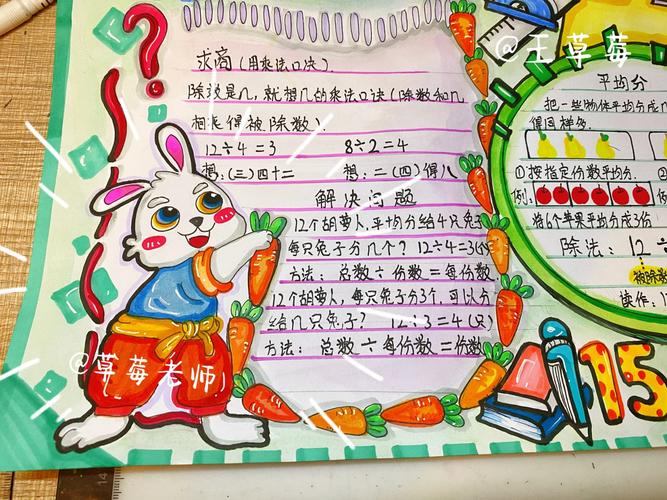 @王草莓
求商(用乘法口决).
除数是几,就想几的乘法口诀(除数和几
相乘得被除数).
12÷4=3 8÷2=4
想:(三)四十二 想:二(四)得八
解决问题
12个胡萝人,平均分给4只兔
每只兔子分几个? 12÷4=3(个)
方法: 总数÷份数=每份数
12个胡萝人,每只兔子分3个,可以分
给几只兔子? 12÷3=4(只)
方法: 总数÷每份数=份数
@草莓老师
平均分
把一些物体平均分成几
得同样多.
①按指定份数平均分.
例:
将6个苹果平均分成3份
除法: 12÷
被除数
读作:
15